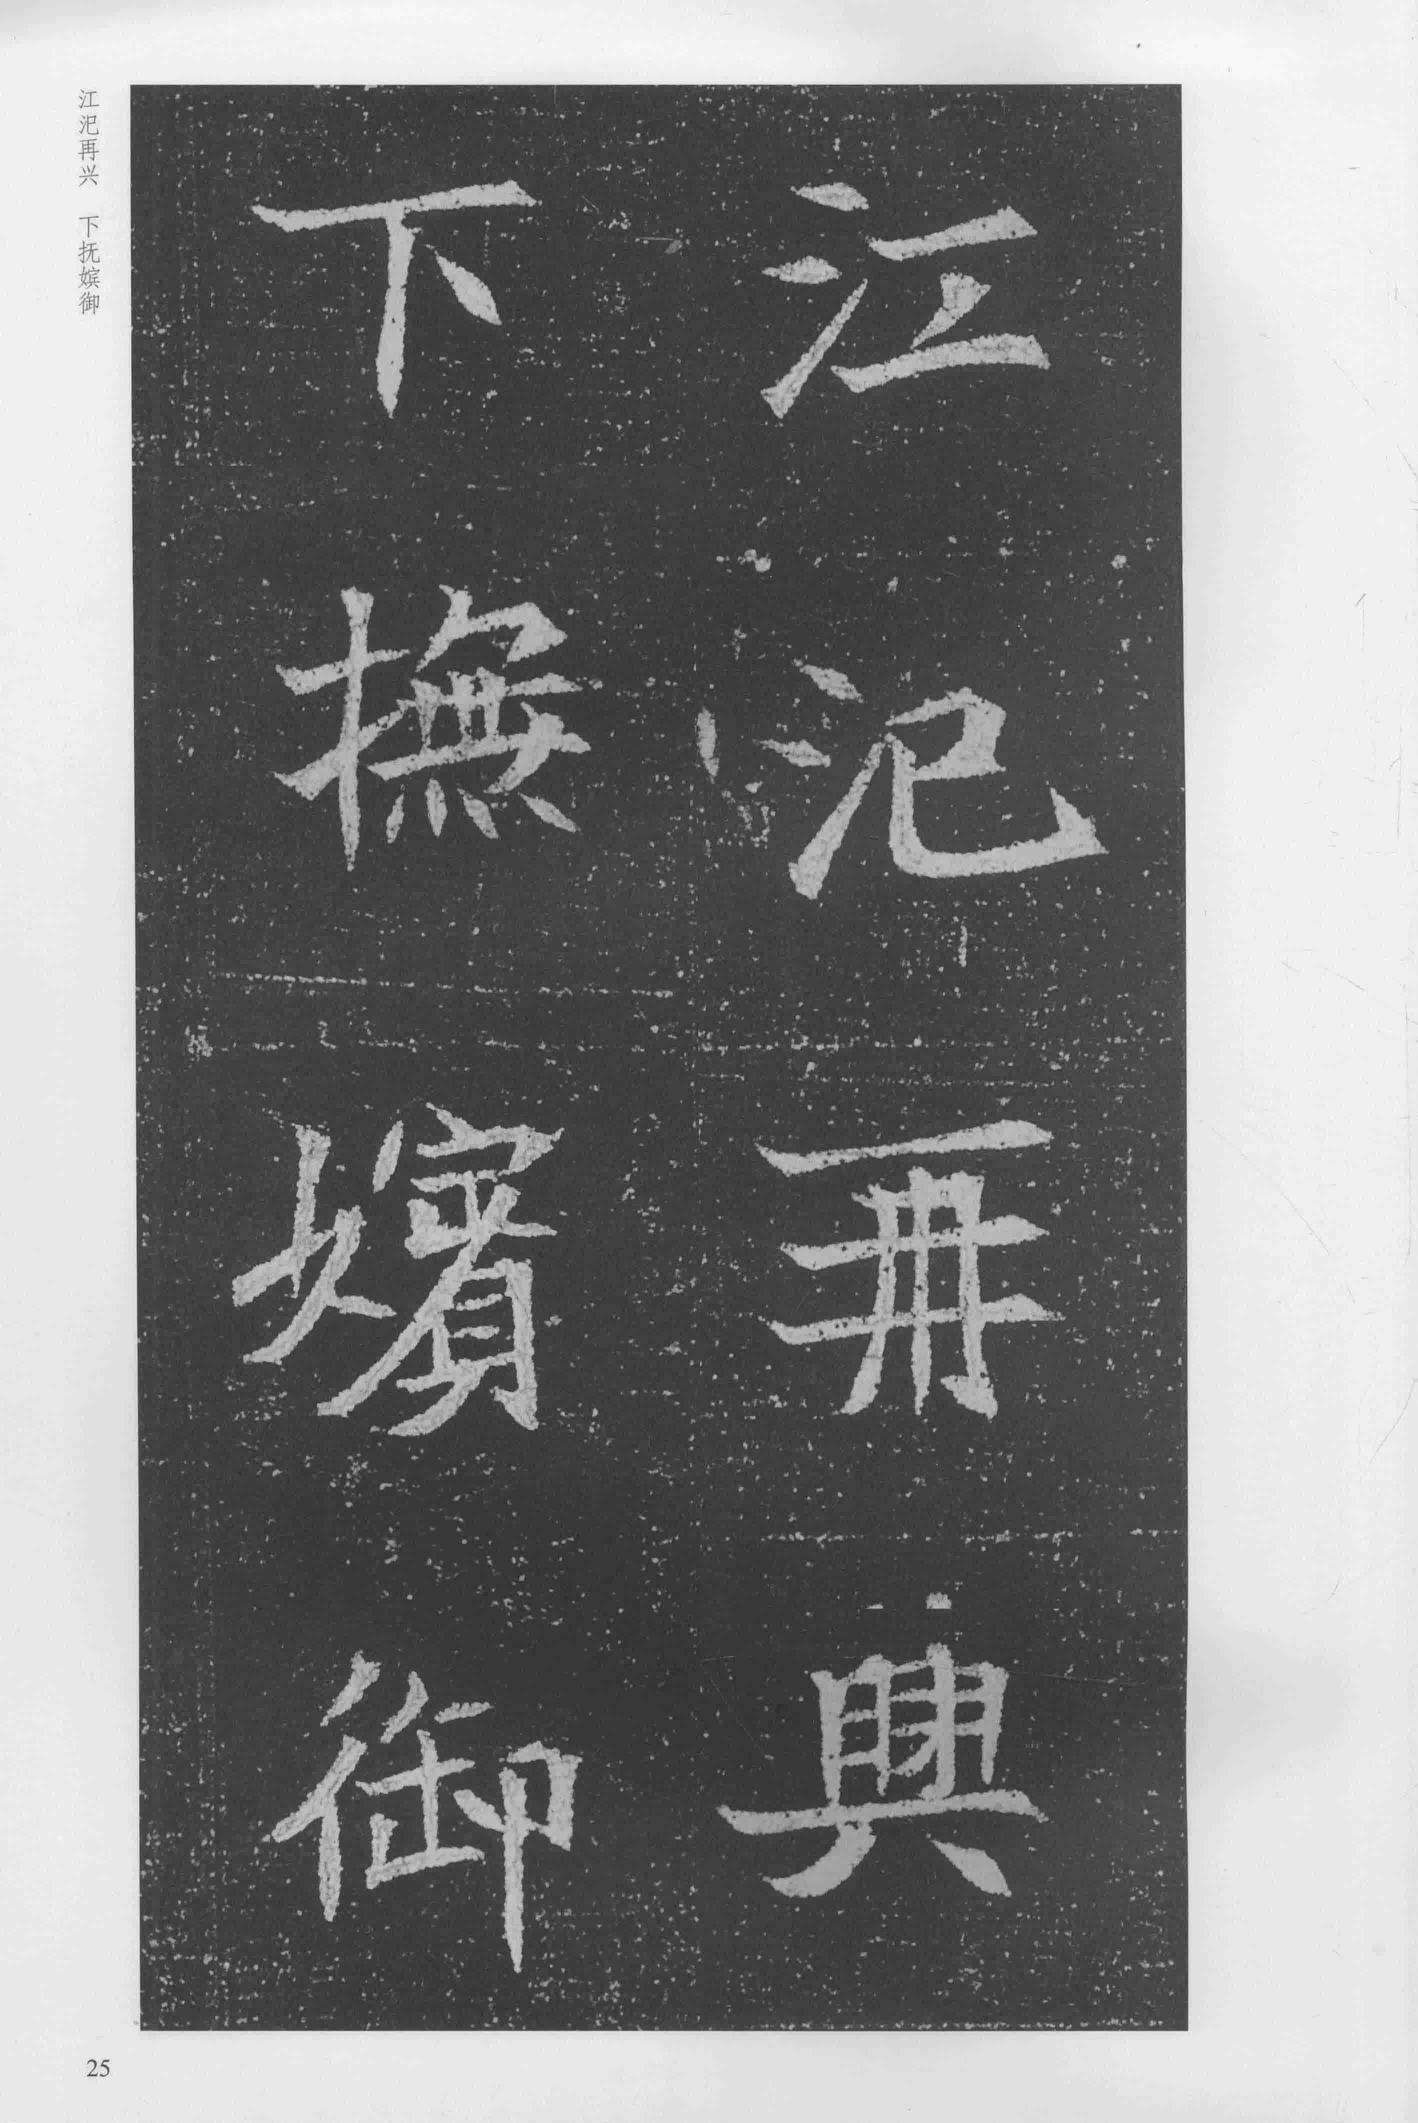 江汜再興
下撫嬪御
江汜再兴 下抚嫔御
25